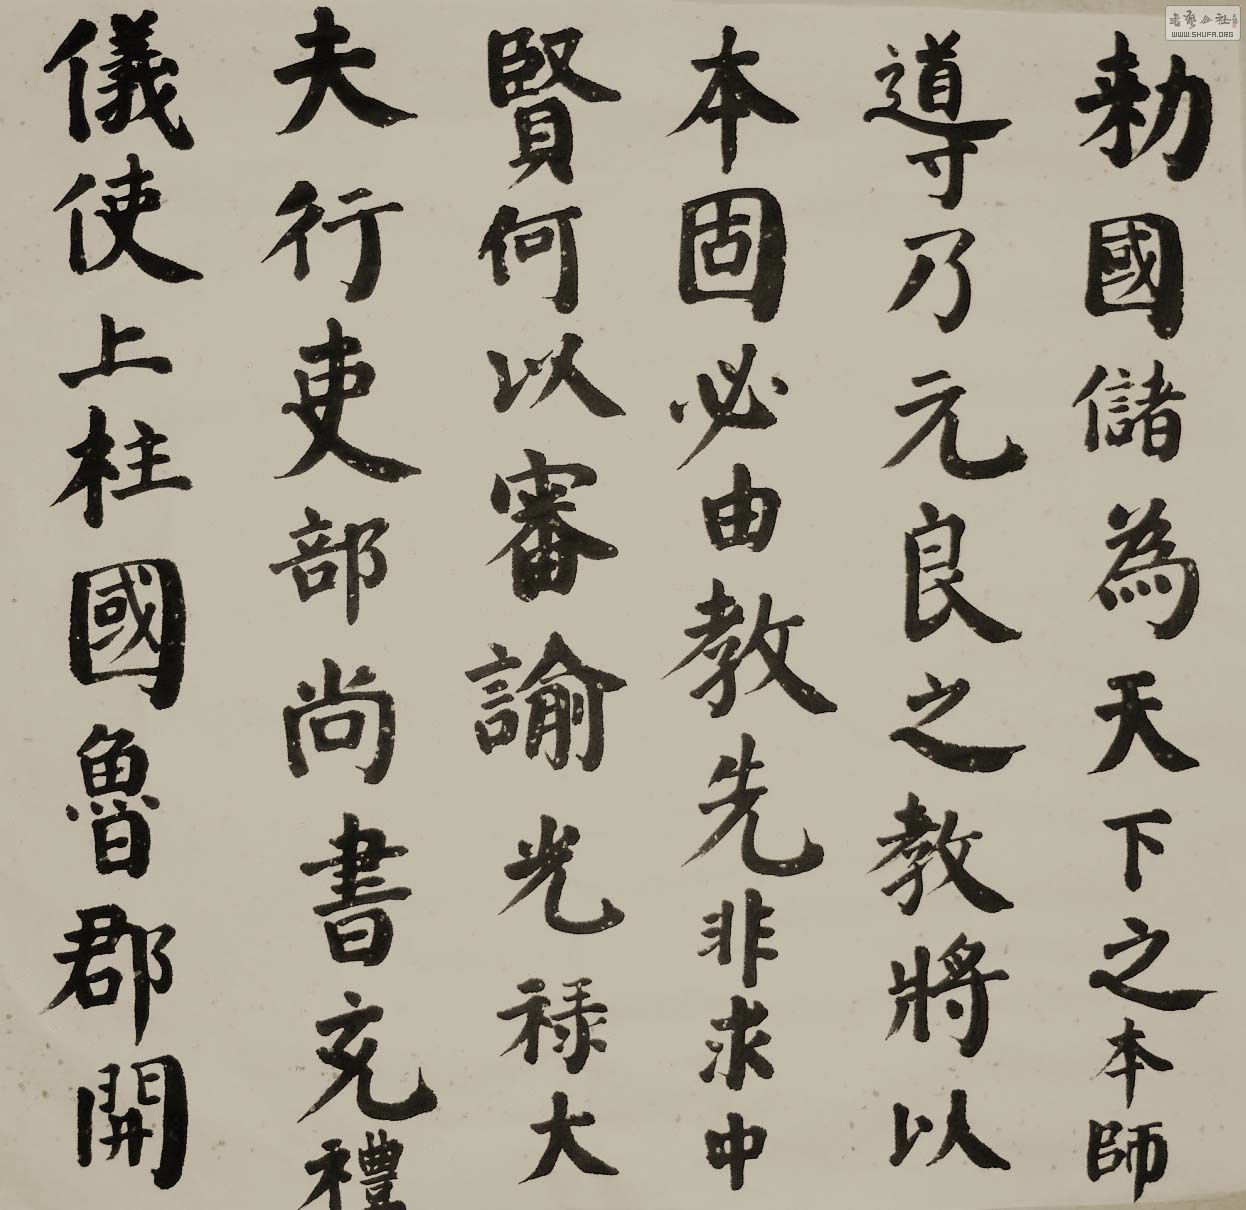 勑國儲為天下之本師
導乃元良之教將以
本固必由教先非求中
賢何以審諭光祿大
夫行吏部尚書充禮
儀使上柱國魯郡開
WWW.SHUFA.ORG